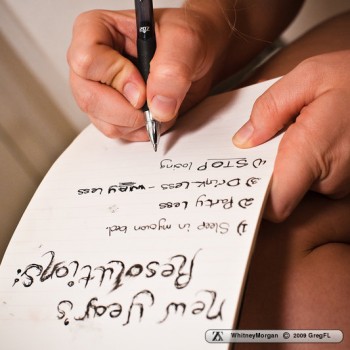 New Year's
Resolutions:
1) Sleep in my own bed.
2) Party Less
3) Drink Less - WAY Less
4) STOP losing
WhitneyMorgan © 2009 GregFL